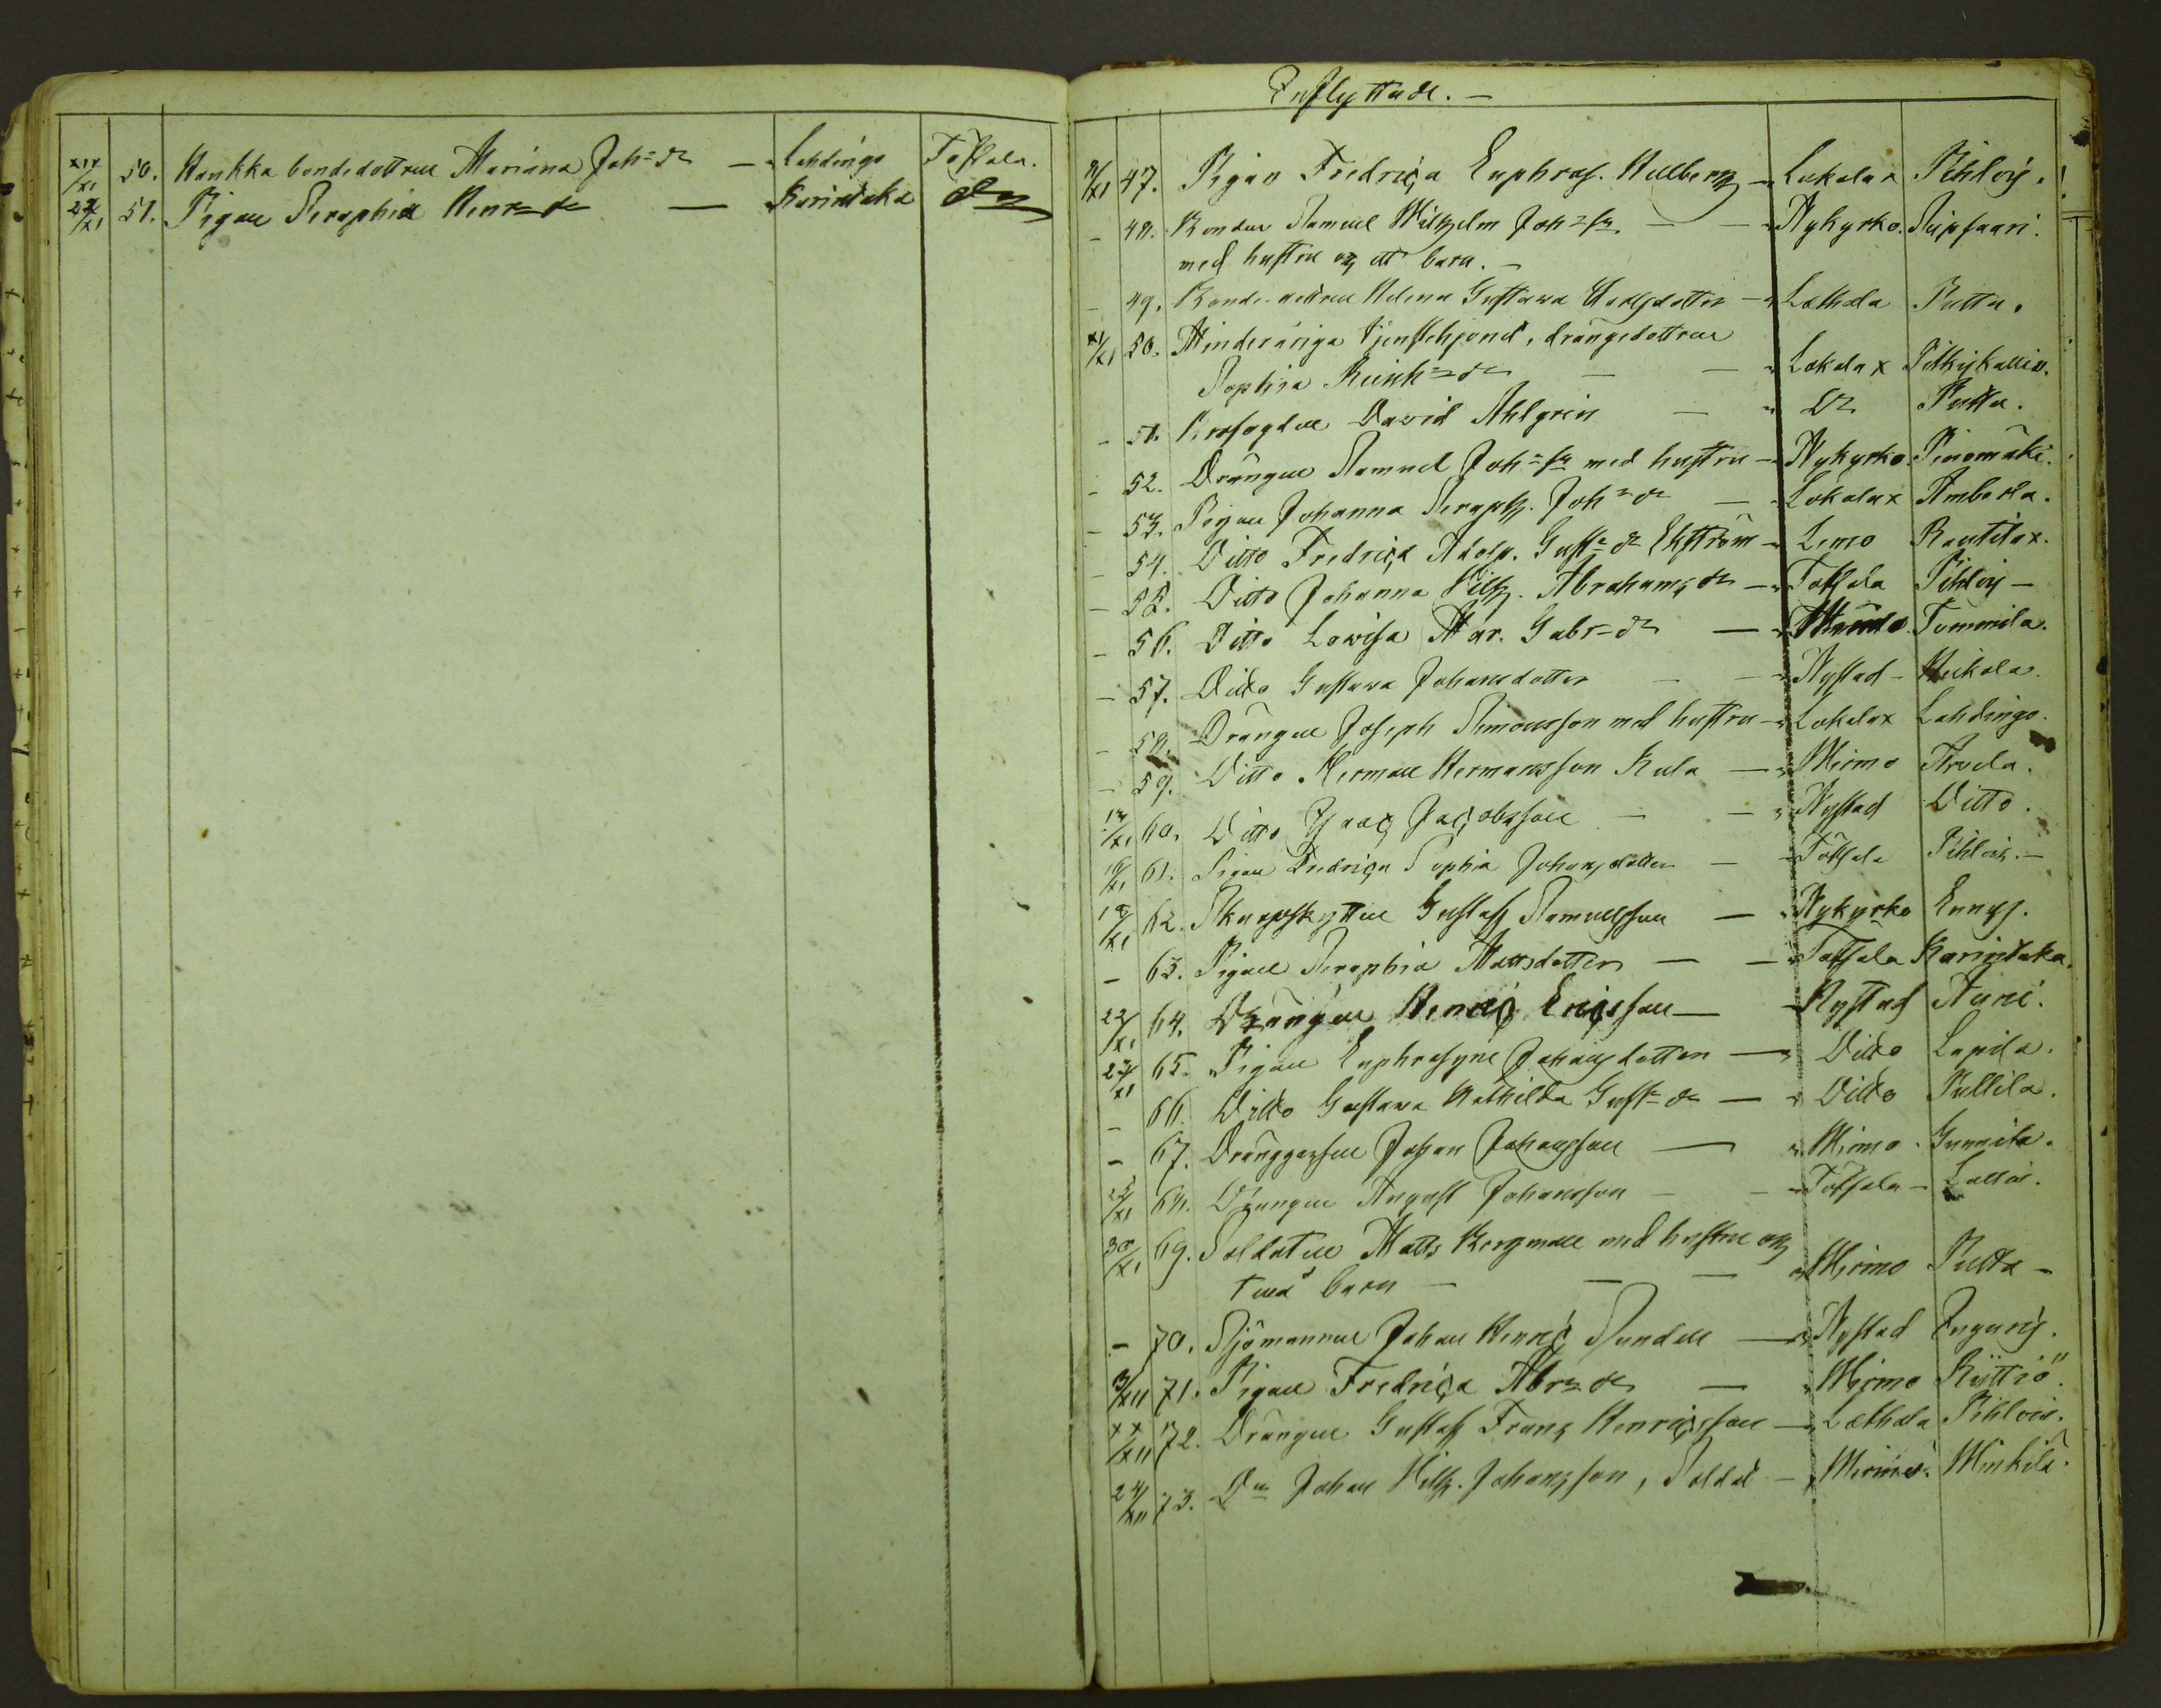 xxx/xi 50. Haukka bondedottren Mariana Joh=dr — Lahdingo Töfsala.
27/xi 51. Pigan Seraphia Henr=dr — Karintaka do
Inflyttade. —
11/xi 47. Pigan Fredrica Euphros. Hellberg — Lokalax Pihloij.
- 48. Bonden Samuel Wilhelm Joh=sn — Nykyrko. Seipsaari.
med hustru och ett barn. —
- 49. Bonde-dottren Helena Gustava Isaksdotter — Lethala Putta.
xi/xi 50. Minderåriga tjenstehjonet, drängedottren
Sophia Heinh=dr — Lokalax Pitkäkallio.
- 51. David Ahlgrén — Do Putta.
- 52. Drängen Samuel Joh=sn med hustru — Nykyrko. Pinomäki.
- 53. Pigan Johanna Seraph. Joh=dr — Lokalax Amberla.
- 54. Ditto Fredrica Adolf. Gust=dr Ekström — Lemo Rautilax.
- 55. Ditto Johanna Vilh. Abrahams dr — Töfsala Pihloij —
- 56. Ditto Lovisa Mar. Gabr=dr — Tummila.
- 57. Ditto Gustava Johansdotter — Nystad — Heikola.
- 58. Drängen Joseph Simonsson med hustru — Lokalax Lahdingo.
- 59. Ditto Herman Hermansson Kula — Wirmo Arvela.
17/xi 60. Ditto Isaac Jacobsson — Nystad Ditto.
18/xi 61. Pigan Fredrica Sophia Johansdotter — Töfsala Pihlois. —
18/xi 62. Skarpskytten Gustaf Samuelsson — Nykyrko Ennys.
- 63. Pigan Seraphia Mattsdotter — Töfsala Karintaka.
22/xi 64. Drängen Henric Ericsson — Nystad Anni.
23/xi 65. Pigan Euphrosyne Johansdotter — Ditto Lapila.
- 66. Ditto Gustava Mathilda Gust=dr — Ditto Pullila.
- 67. Dränggossen Johan Johansson — Wirmo Gunnila.
25/xi 68. Drängen August Johansson — Töfsala — Lallais.
30/xi 69. Soldaten Matts Bergman med hustru och
två barn — Wirmo Putta —
- 70. Sjömannen Johan Henric Sundell — Nystad Ingaris.
3/xii 71. Pigan Fredrica Abr=dr — Wirmo Kyttiö.
xx/xii 72. Drängen Gustaf Frans Henricsson — Lethala Pihlois.
24/xii 73. Dn Johan Vilh. Johansson, Soldat — Wirmo. Minkilä.